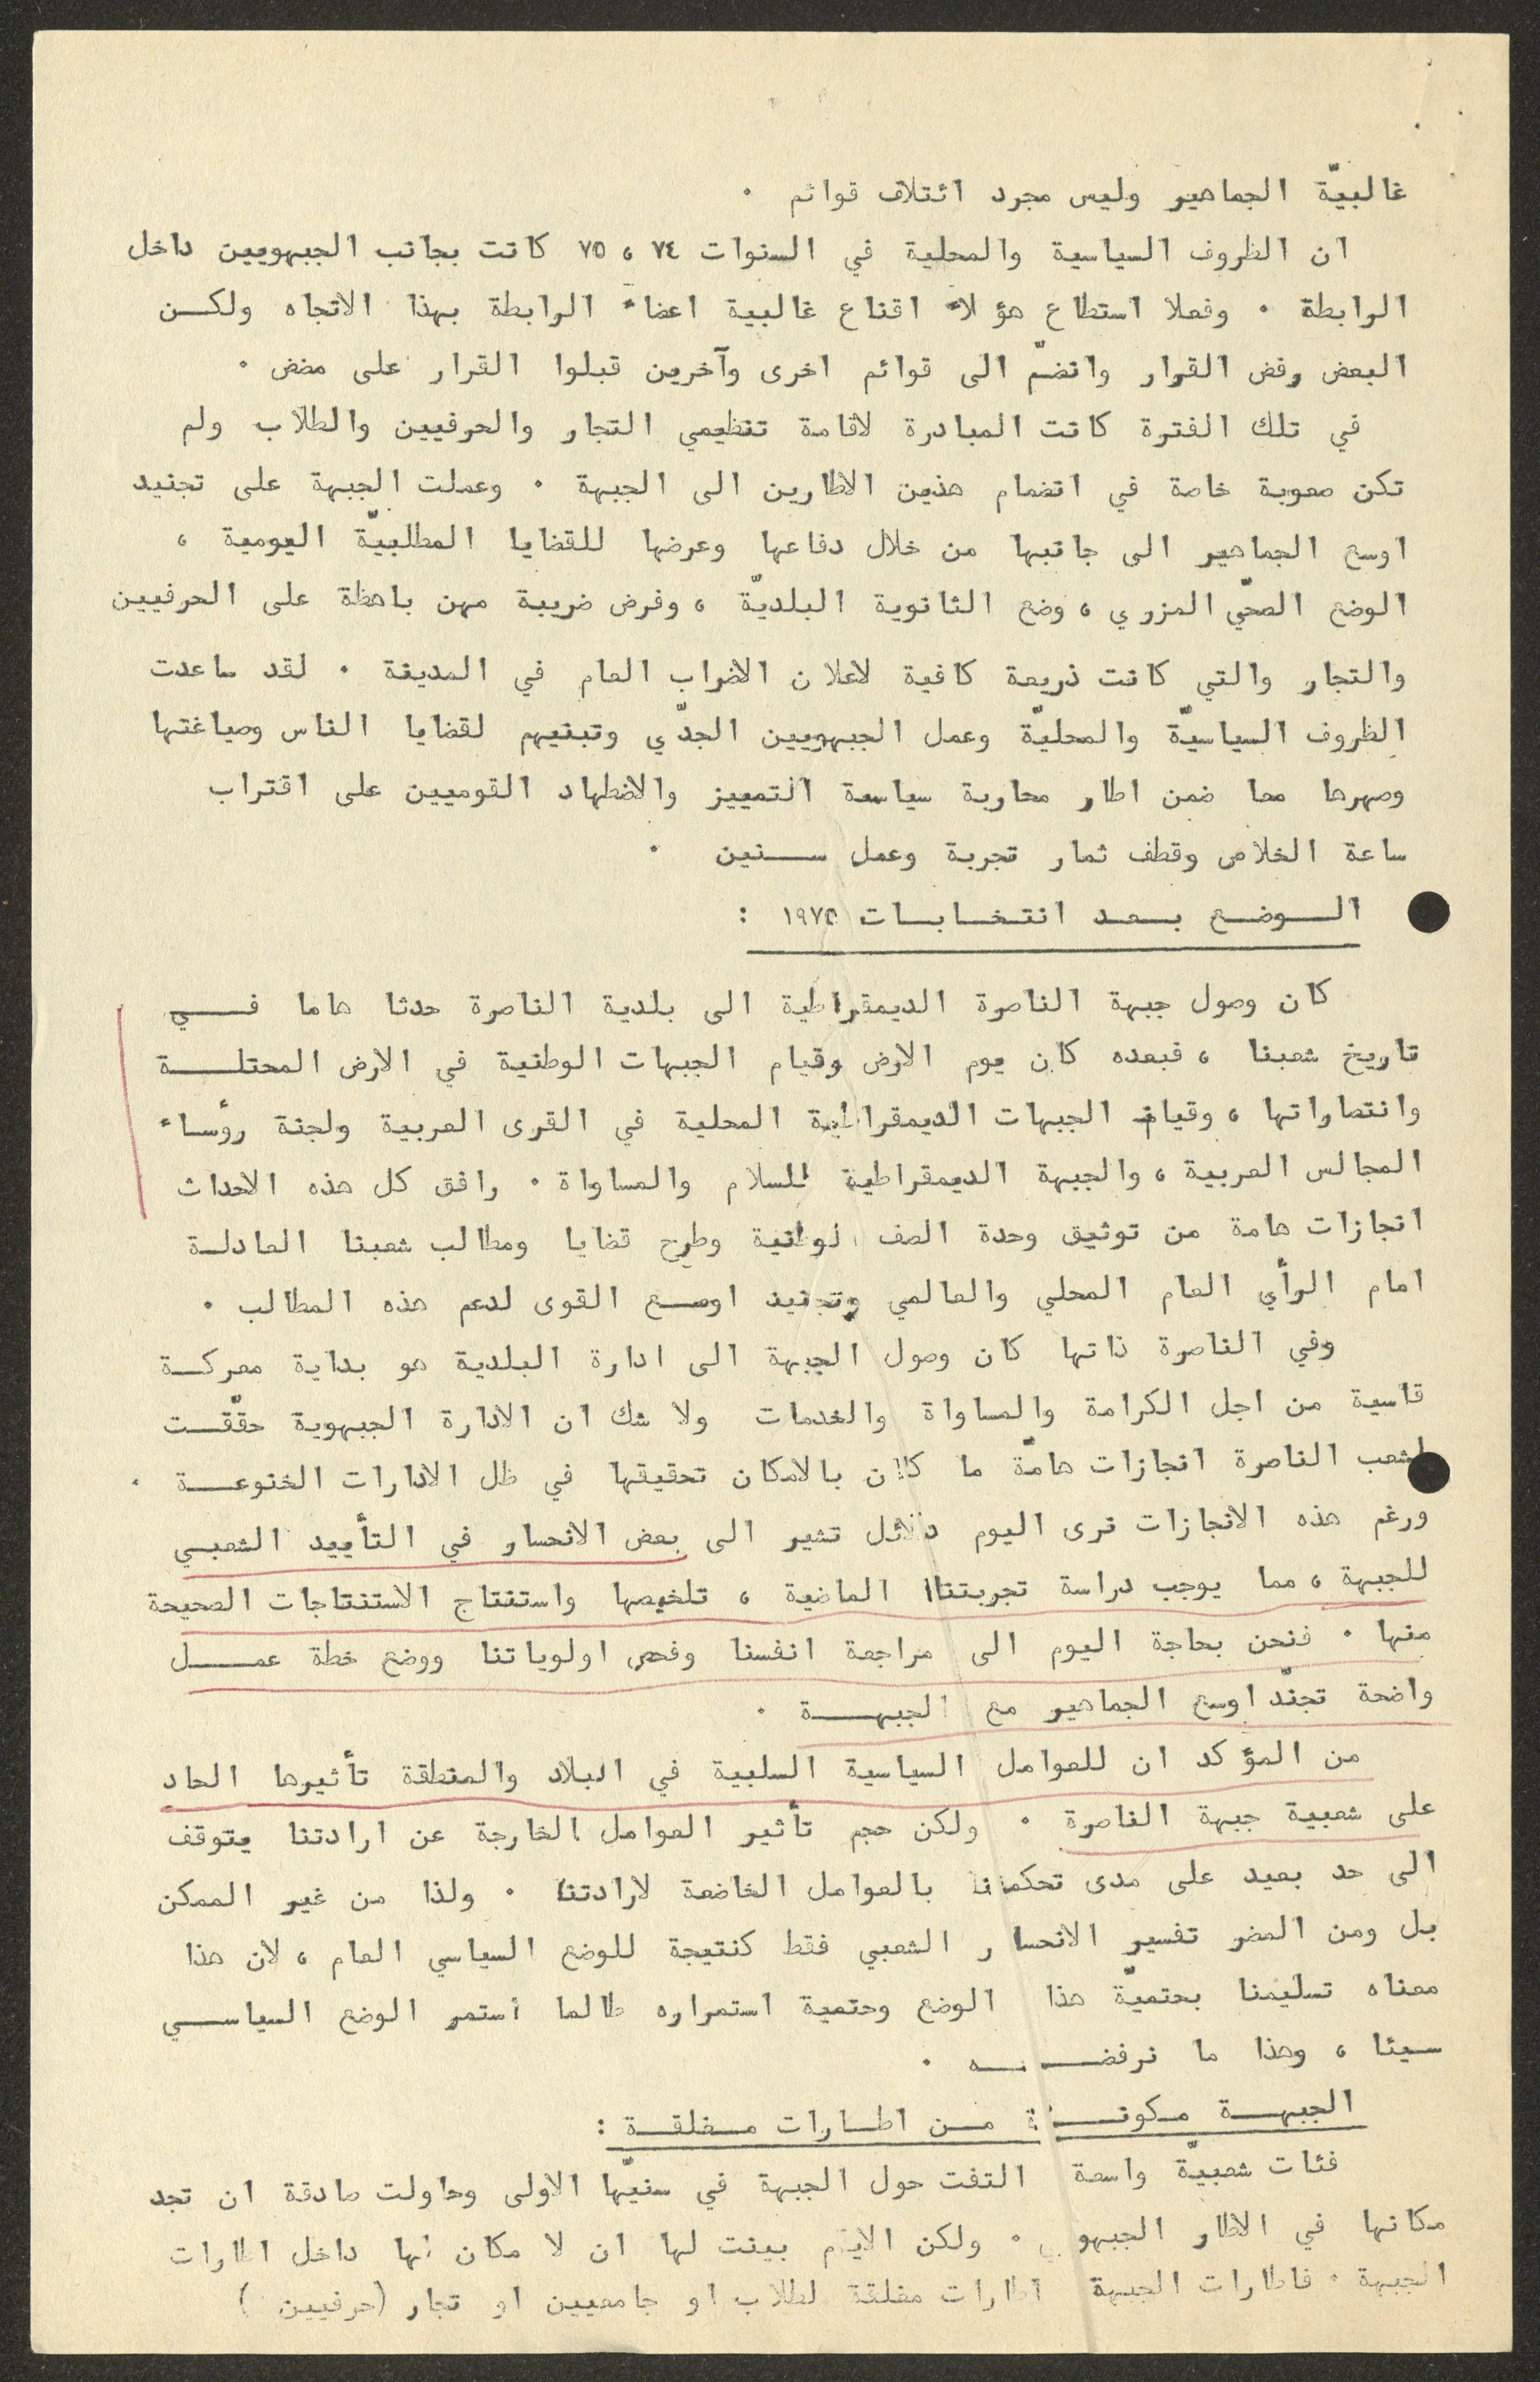 غالبيّة الجماهير وليس مجرد ائتلاف قوائم ٠
ان الظروف السياسية والمحلية في السنوات ٧٤ ، ٧٥ كانت بجانب الجبهويين داخل
الرابطة ٠ وفعلا استطاع هؤلاء اقناع غالبية اعضاء الرابطة بهذا الاتجاه ولكن
البعض رفض القرار وانضمّ الى قوائم اخرى وآخرين قبلوا القرار على مضض ٠
في تلك الفترة كانت المبادرة لاقامة تنظيمي التجار والحرفيين والطلاب ولم
تكن صعوبة خاصة في انضمام هذين الاطارين الى الجبهة ٠ وعملت الجبهة على تجنيد
اوسع الجماهير الى جانبها من خلال دفاعها وعرضها للقضايا المطلبيّة اليومية ،
الوضع الصحّي المزري ، وضع الثانوية البلديّة ، وفرض ضريبة مهن باهظة على الحرفيين
والتجار والتي كانت ذريعة كافية لاعلان الاضراب العام في المدينة ٠ لقد ساعدت
الظروف السياسيّة والمحليّة وعمل الجبهويين الجدّي وتبنيهم لقضايا الناس وصياغتها
وصهرها معا ضمن اطار محاربة سياسة التمييز والاضطهاد القوميين على اقتراب
ساعة الخلاص وقطف ثمار تجربة وعمل سنين ٠
الوضع بعد انتخابات ١٩٧٥ :
كان وصول جبهة الناصرة الديمقراطية الى بلدية الناصرة حدثا هاما في
تاريخ شعبنا ، فبعده كان يوم الارض وقيام الجبهات الوطنية في الارض المحتلة
وانتصاراتها ، وقيام الجبهات الديمقراطية المحلية في القرى العربية ولجنة رؤساء
المجالس العربية ، والجبهة الديمقراطية للسلام والمساواة ٠ رافق كل هذه الاحداث
انجازات هامة من توثيق وحدة الصف الوطنية وطرح قضايا ومطالب شعبنا العادلة
امام الرأي العام المحلي والعالمي وتجنيد اوسع القوى لدعم هذه المطالب ٠
وفي الناصرة ذاتها كان وصول الجبهة الى ادارة البلدية هو بداية معركة
قاسية من اجل الكرامة والمساواة والخدمات ولا شك ان الادارة الجبهوية حقّقت
لشعب الناصرة انجازات هامّة ما كان بالامكان تحقيقها في ظل الادارات الخنوعة ٠
ورغم هذه الانجازات نرى اليوم دلائل تشير الى بعض الانحسار في التأييد الشعبي
للجبهة ، مما يوجب دراسة تجربتنا الماضية ، تلخيصها واستنتاج الاستنتاجات الصحيحة
منها ٠ فنحن بحاجة اليوم الى مراجعة انفسنا وفحص اولوياتنا ووضع خطة عمل
واضحة تجنّد اوسع الجماهير مع الجبهة ٠
من المؤكد ان للعوامل السياسية السلبية في البلاد والمنطقة تأثيرها الحاد
على شعبية جبهة الناصرة ٠ ولكن حجم تأثير العوامل الخارجة عن ارادتنا يتوقف
الى حد بعيد على مدى تحكمنا بالعوامل الخاضعة لارادتنا ٠ ولذا من غير الممكن
بل ومن المضر تفسير الانحسار الشعبي فقط كنتيجة للوضع السياسي العام ، لان هذا
معناه تسليمنا بحتميّة هذا الوضع وحتمية استمراره طالما استمر الوضع السياسي
سيئا ، وهذا ما نرفضه ٠
الجبهة مكونة من اطارات مغلقة :
فئات شعبيّة واسعة التفت حول الجبهة في سنيّها الاولى وحاولت صادقة ان تجد
مكانها في الاطار الجبهوي ٠ ولكن الايام بينت لها ان لا مكان لها داخل اطارات
الجبهة ٠ فاطارات الجبهة اطارات مغلقة لطلاب او جامعيين او تجار (حرفيين )